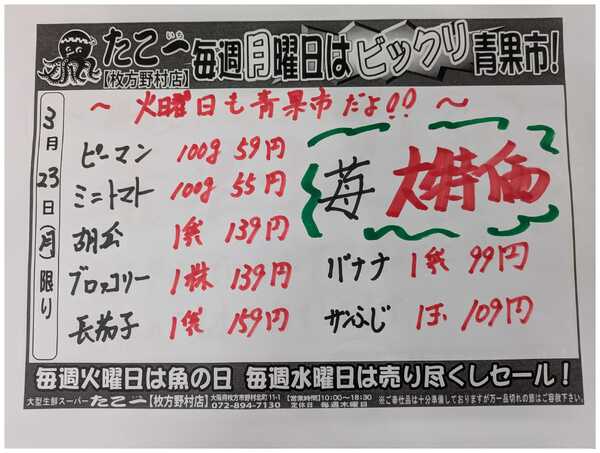 たこ一
いち
【枚方野村店】
毎週月曜日はビックリ青果市!
〜 火曜日も青果市だよ!! 〜
3月23日(月)限り
ピーマン 100g 59円
ミニトマト 100g 55円
胡瓜 1袋 139円
ブロッコリー 1株 139円
長茄子 1袋 159円
苺 大特価
バナナ 1袋 99円
サンふじ 1玉 109円
毎週火曜日は魚の日 毎週水曜日は売り尽くしセール!
大型生鮮スーパー たこ一【枚方野村店】 大阪府枚方市野村北町11-1 【営業時間】10:00〜18:30 ※ご奉仕品は十分準備しておりますが万一品切れの節はご容赦下さい。
072-894-7130 定休日 毎週木曜日